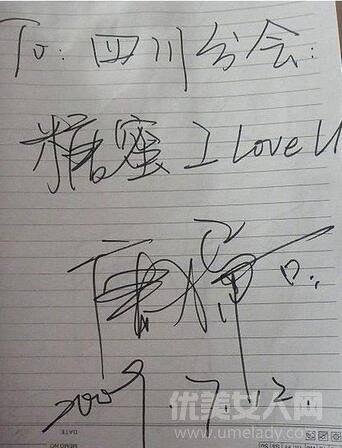 To: 四川分会:
糖蜜 I Love U
2009 7.12.
MEMO NO
DATE
优美女人网
www.umelady.com